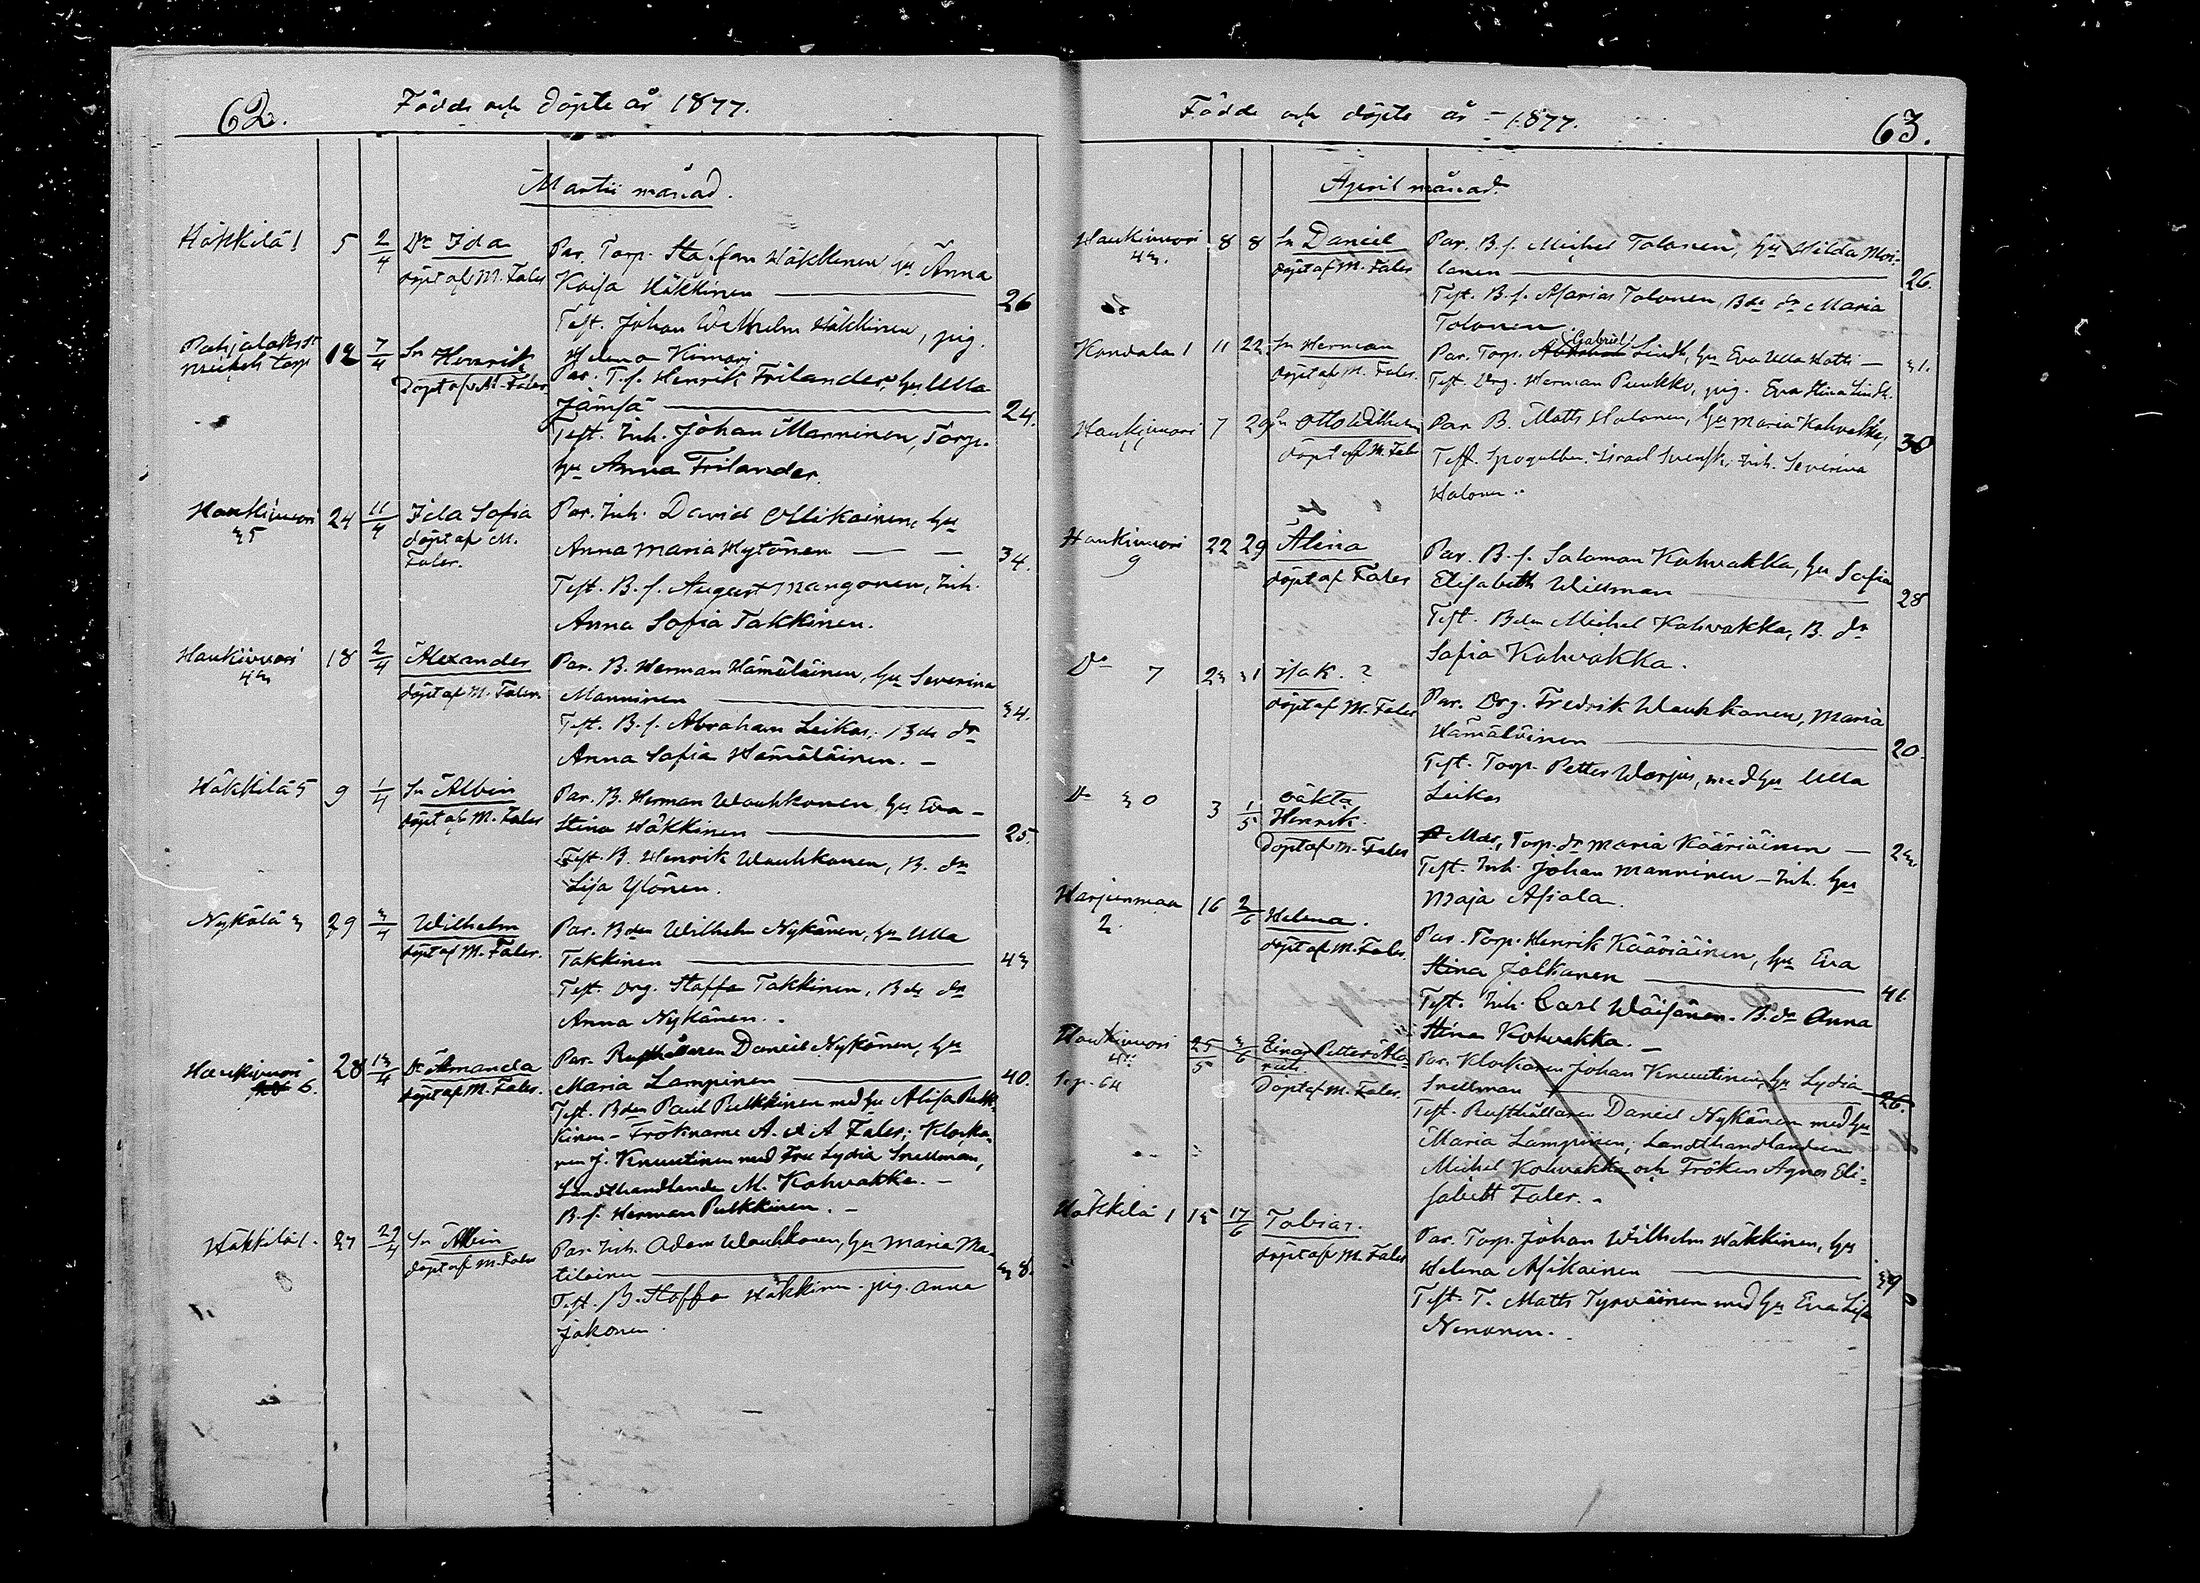 62.
Födde och döpte år 1877.
Martii månad.
Häkkilä 1 5 2/4 Dr Ida
döpt af M. Faler
Par. Torp. Staffan Häkkinen hu Anna
Kaisa Häkkinen 26
Test. Johan Wilhelm Häkkinen, pig.
Helena
12 7/4 Sn Henrik
Döpt af M. Faler
Par. T.f. Henrik Frilander hu Ulla
Jämsä 24.
Test. Inh. Johan Manninen, Torp.
hu Anna Frilander.
Haukivuori 24 11/4 Ida Sofia
35
döpt af M.
Faler.
Par. Inh. David Ollikainen, hu
Anna Maria Hytönen 34.
Test. B.f. August Mangonen, Inh.
Anna Sofia Takkinen.
Haukivuori 18 2/4 Alexander
43
döpt af M. Faler.
Par. B. Herman Hämäläinen, hu Severina
Manninen 34.
Test. B.f. Abraham Leikas, Bds dr
Anna Sofia Hämäläinen. –
Häkkilä 5 9 1/4 Sn Albin
döpt af M. Faler
Par. B. Herman Wauhkonen, hu Eva –
Stina Häkkinen 25.
Test. B. Henrik Wauhkonen, B. dr
Lisa Ylönen.
Nykälä 3 29 3/4 Wilhelm
döpt af M. Faler.
Par. Bden Wilhelm Nykänen, hu Ulla
Takkinen 43
Test. Drg. Staffa Takkinen, Bds dr
Anna Nykänen. –
Haukivuori 28 13/4 Dr Amanda
6.
döpt af M. Faler.
Par. Rusthållaren Daniel Nykänen, hu
Maria Lampinen 40.
Test. Bden Paul Pulkkinen med hu Alisa Pulk-
kinen – Fröknarne A. & A Faler; Klocka-
ren J. Knuutinen med Fru Lydia Snellman,
Landthandlanden M. Kahvakka. –
B.f. Herman Pulkkinen. –
Häkkilä 1. 27 29/4 Sn Albin
döpt af M. Faler
Par. Inh. Adam Wauhkonen, hu Maria Ma-
tilainen 38.
Test. B. Staffa Häkkinen – pig. Anna
Jokonen.
63.
Födde och döpte år – 1877.
April månad.
Haukivuori 8 8 Sn Daniel
43.
döpt af M. Faler
Par. B.f. Michel Tolonen, hu Hilda Moi-
lanen 26.
Test. B.f. Asarias Tolonen, Bds dr Maria
Tolonen.
Kandala 1 11 22. Sn Herman
döpt af M. Faler.
Gabriel
Par. Torp. Lindh, hu Eva Ulla Hatti — 31.
Test. Drg. Herman Puukko, pig. Eva Stina Lindh.
Haukivuori 7 29 Sn Otto Wilhelm
döpt af M. Faler
Par. B. Matts Halonen, hu Maria Kahvakka, 30
Test. Israel Svensk, Inh. Severina
Halonen.
Haukivuori 22 29 Alina
9
döpt af Faler
Par. B.f. Salomon Kahvakka, hu Sofia
Elisabeth Willman 28
Test. Bden Michel Kahvakka, B. dr
Sofia Kahvakka.
Do 7 23 31 Isak. ?
döpt af M. Faler
Par. Drg. Fredrik Wauhkonen, Maria
Hämäläinen 20.
Test. Torp. Petter Warjus, med hu Ulla
Leikas
Do 30 3 1/5 oäkta
Henrik.
Döpt af M. Faler
Mod., Torp. dr Maria Kääriäinen — 23
Test. Inh. Johan Manninen – Inh. hu
Maja Asiala.
Harjunmaa 16 2/6 Helena.
2.
döpt af M. Faler.
Par. Torp. Henrik Kääriäinen, hu Eva
Stina Jolkanen 41.
Test. Inh. Carl Wäisänen. B. dr Anna
Stina Kahvakka. –
Haukivuori 25/5 3/6 Einar Petter Ala-
rich.
Döpt af M. Faler.
Par. Klockaren Johan Knuutinen, hu Lydia
Snellman 26.
Test. Rusthållaren Daniel Nykänen med hu
Maria Lampinen; Landthandlanden
Michel Kahvakka och Fröken Agnes Eli-
sabeth Faler. –
Häkkilä 1 15 17/6 Tobias.
döpt af M. Faler
Par. Torp. Johan Wilhelm Häkkinen, hu
Helena Asikainen 39
Test. T. Matts Tyrväinen med hu Eva Lisa
Nenonen. –